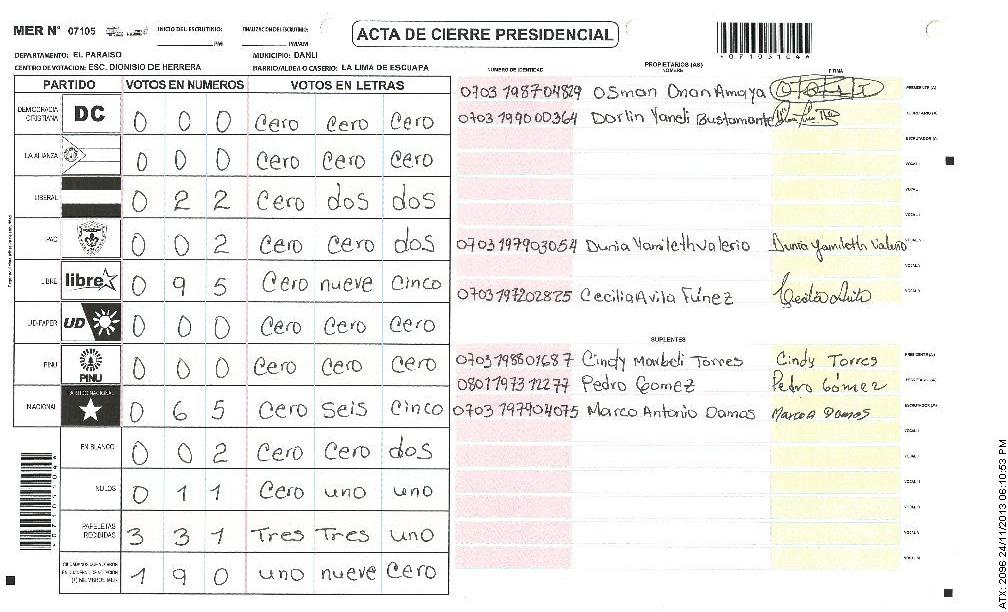 MER Nº 07105 INICIO DEL ESCRUTINIO: PM FINALIZACIÓN DEL ESCRUTINIO: PM/AM
ACTA DE CIERRE PRESIDENCIAL
*07105104A*
DEPARTAMENTO: EL PARAISO MUNICIPIO: DANLI
CENTRO DE VOTACION: ESC. DIONISIO DE HERRERA BARRIO/ALDEA O CASERIO: LA LIMA DE ESCUAPA
PARTIDO VOTOS EN NUMEROS VOTOS EN LETRAS
DEMOCRACIA CRISTIANA DC 0 0 0 Cero Cero Cero
LA ALIANZA 0 0 0 Cero Cero Cero
LIBERAL 0 2 2 Cero dos dos
PAC 0 0 2 Cero Cero dos
LIBRE libre 0 9 5 Cero nueve Cinco
UD-FAPER UD 0 0 0 Cero Cero Cero
PINU PINU 0 0 0 Cero Cero Cero
NACIONAL PARTIDO NACIONAL 0 6 5 Cero Seis Cinco
EN BLANCO 0 0 2 Cero Cero dos
NULOS 0 1 1 Cero uno uno
PAPELETAS RECIBIDAS 3 3 1 Tres Tres uno
CIUDADANOS QUE VOTARON EN CUADERNO DE VOTACION (+) MIEMBROS MER 1 9 0 uno nueve Cero
PROPIETARIOS (AS)
NUMERO DE IDENTIDAD NOMBRE FIRMA
0703 1987 04829 Osman Onan Amaya PRESIDENTE (A)
0703 1990 00364 Darlin Yaneli Bustamante SECRETARIO (A)
ESCRUTADOR (A)
VOCAL I
VOCAL II
0703 1979 03054 Dunia Yamileth Valerio Dunia Yamileth Valerio
0703 1972 02825 Cecilia Avila Fúnez
SUPLENTES
0703 1988 01687 Cindy Marbeli Torres Cindy Torres PRESIDENTE (A)
0801 1973 12277 Pedro Gomez Pedro Gómez SECRETARIO (A)
0703 1979 04075 Marco Antonio Damas Marco A Damas ESCRUTADOR (A)
VOCAL I
ATX: 2096 24/11/2013 06:10:53 PM